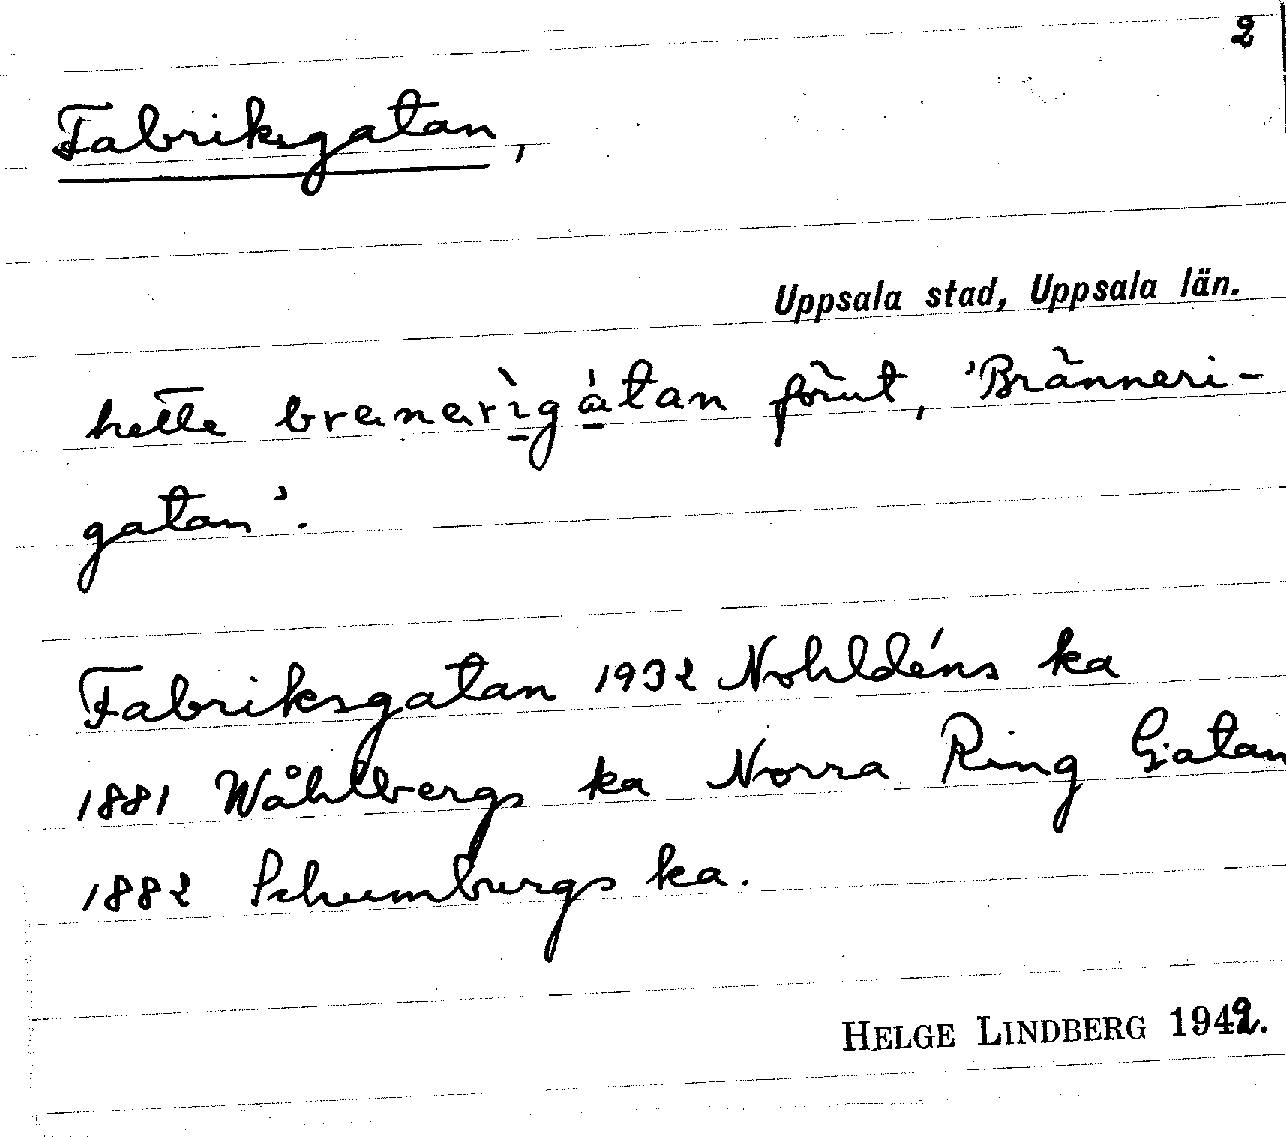 2
Fabriksgatan,
Uppsala stad, Uppsala län.
hette brenerìgátan förut, 'Bränneri-
gatan'.
Fabriksgatan 1932 Nohldéns ka
1881 Wåhlbergs ka Norra Ring Gatan
1882 Schumburgs ka.
HELGE LINDBERG 1942.